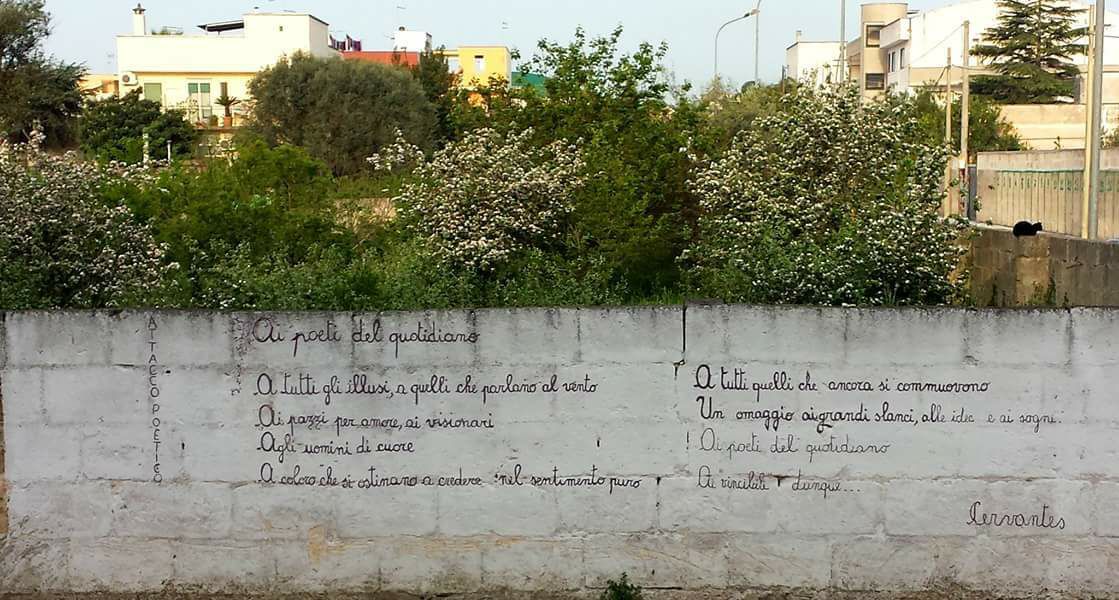 ATTACCO POETICO
Ai poeti del quotidiano
A tutti gli illusi, a quelli che parlano al vento
Ai pazzi per amore, ai visionari
Agli uomini di cuore
A coloro che si ostinano a credere nel sentimento puro
A tutti quelli che ancora si commuovono
Un omaggio ai grandi slanci, alle idee e ai sogni.
Ai poeti del quotidiano
Ai dunque...
Cervantes